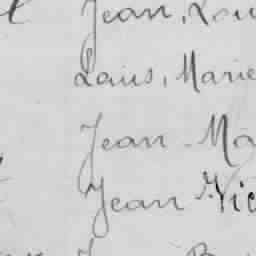 Jean, Lou
Laus, Marie
Jean-Ma
Jean-Vic